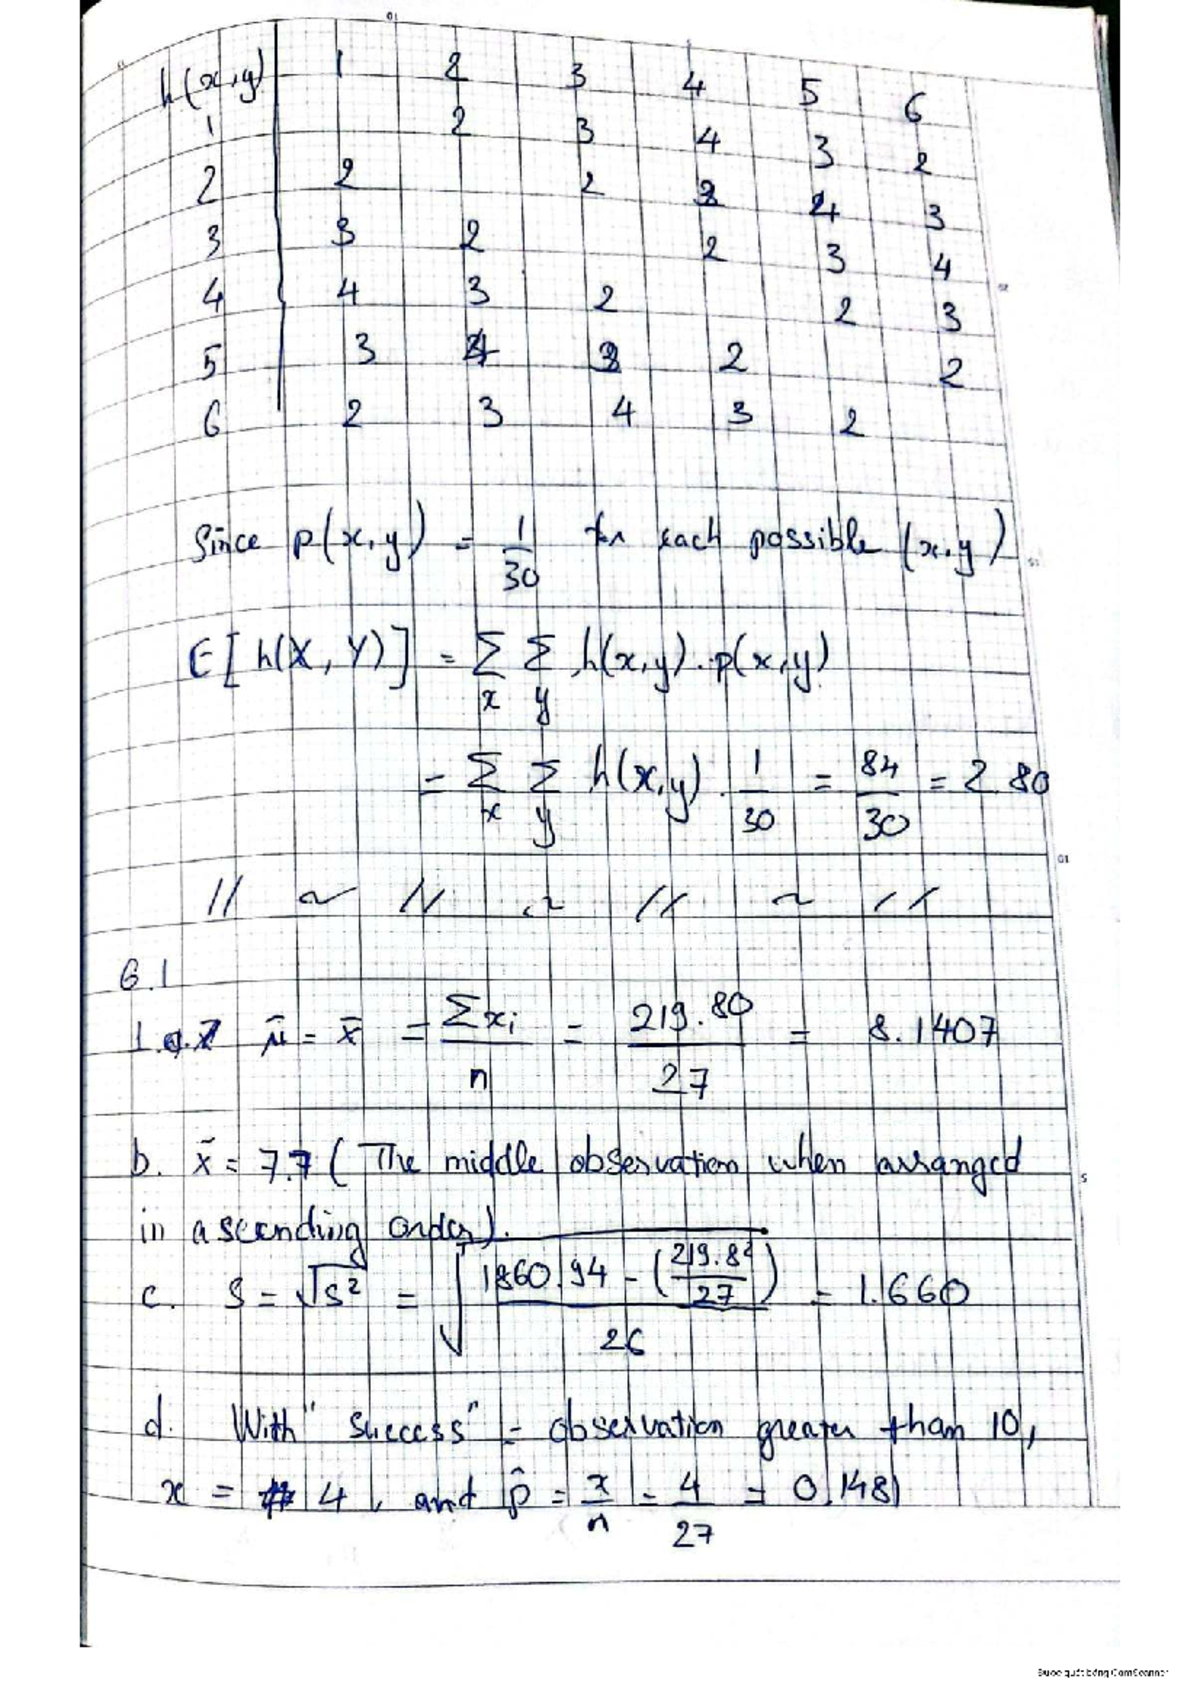 h(x,y) 1 2 3 4 5 6
1 2 3 4 3 2
2 2 2 3 4 3
3 3 2 2 3 4
4 4 3 2 2 3
5 3 4 3 2 2
6 2 3 4 3 2
Since p(x,y) = 1/30 for each possible (x,y)
E[h(X,Y)] = Σx Σy h(x,y).p(x,y)
= Σx Σy h(x,y).1/30 = 84/30 = 2.80
// ~ N ~ // ~ //
6.1
1. μ̃ = x̄ = Σxi/n = 219.80/27 = 8.1407
b. x̃ = 7.7 (The middle observation when arranged
in ascending order).
c. S = √S² = √((1860.94 - (219.8²/27))/26) = 1.660
d. With "success" = observation greater than 10,
x = 4, and p̂ = x/n = 4/27 = 0.1481
Được quét bằng CamScanner